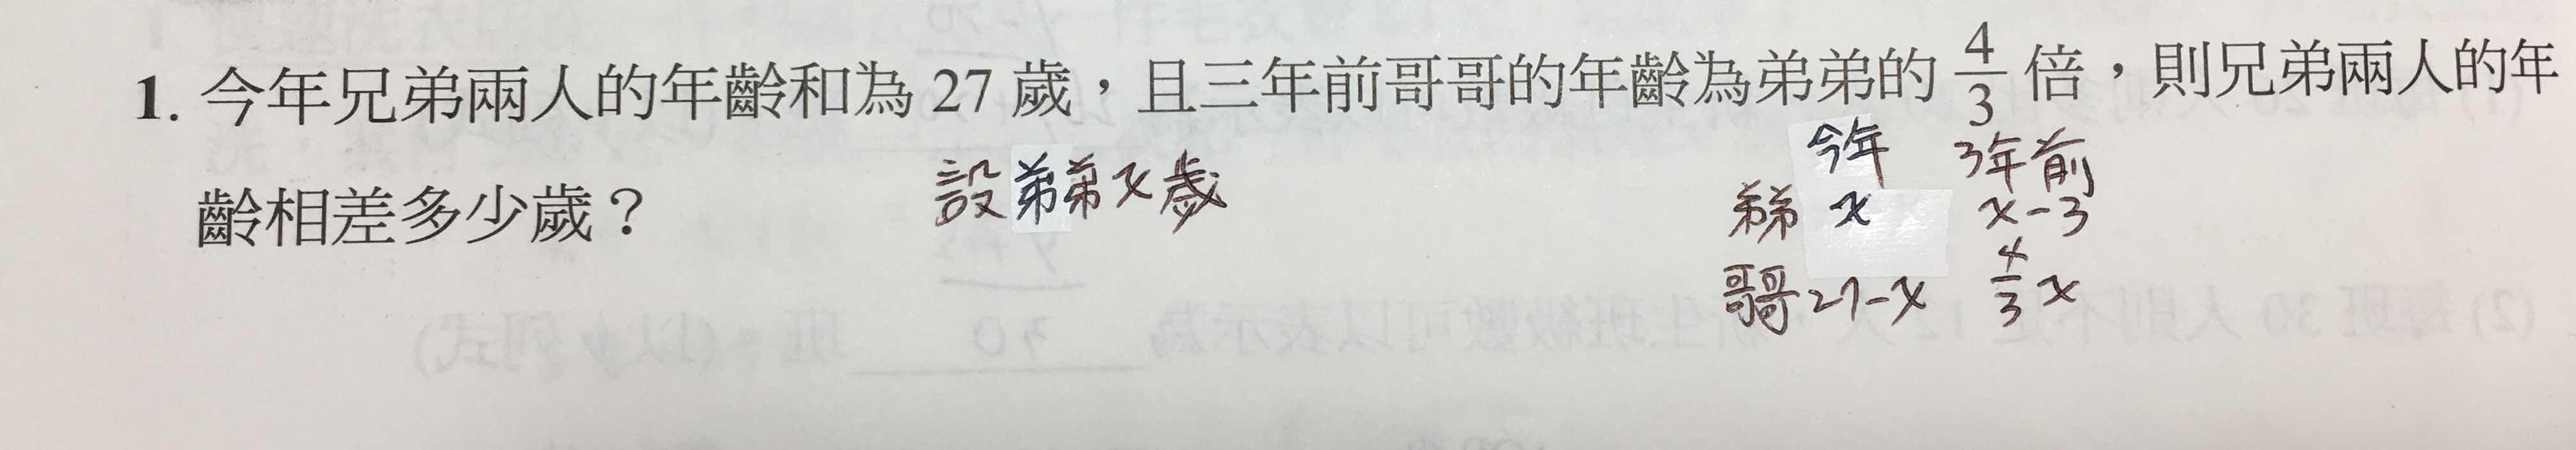 1. 今年兄弟兩人的年齡和為 27 歲，且三年前哥哥的年齡為弟弟的 4/3 倍，則兄弟兩人的年
齡相差多少歲？
設弟弟x歲
今年 3年前
弟弟 x x-3
哥哥 27-x 4/3 x